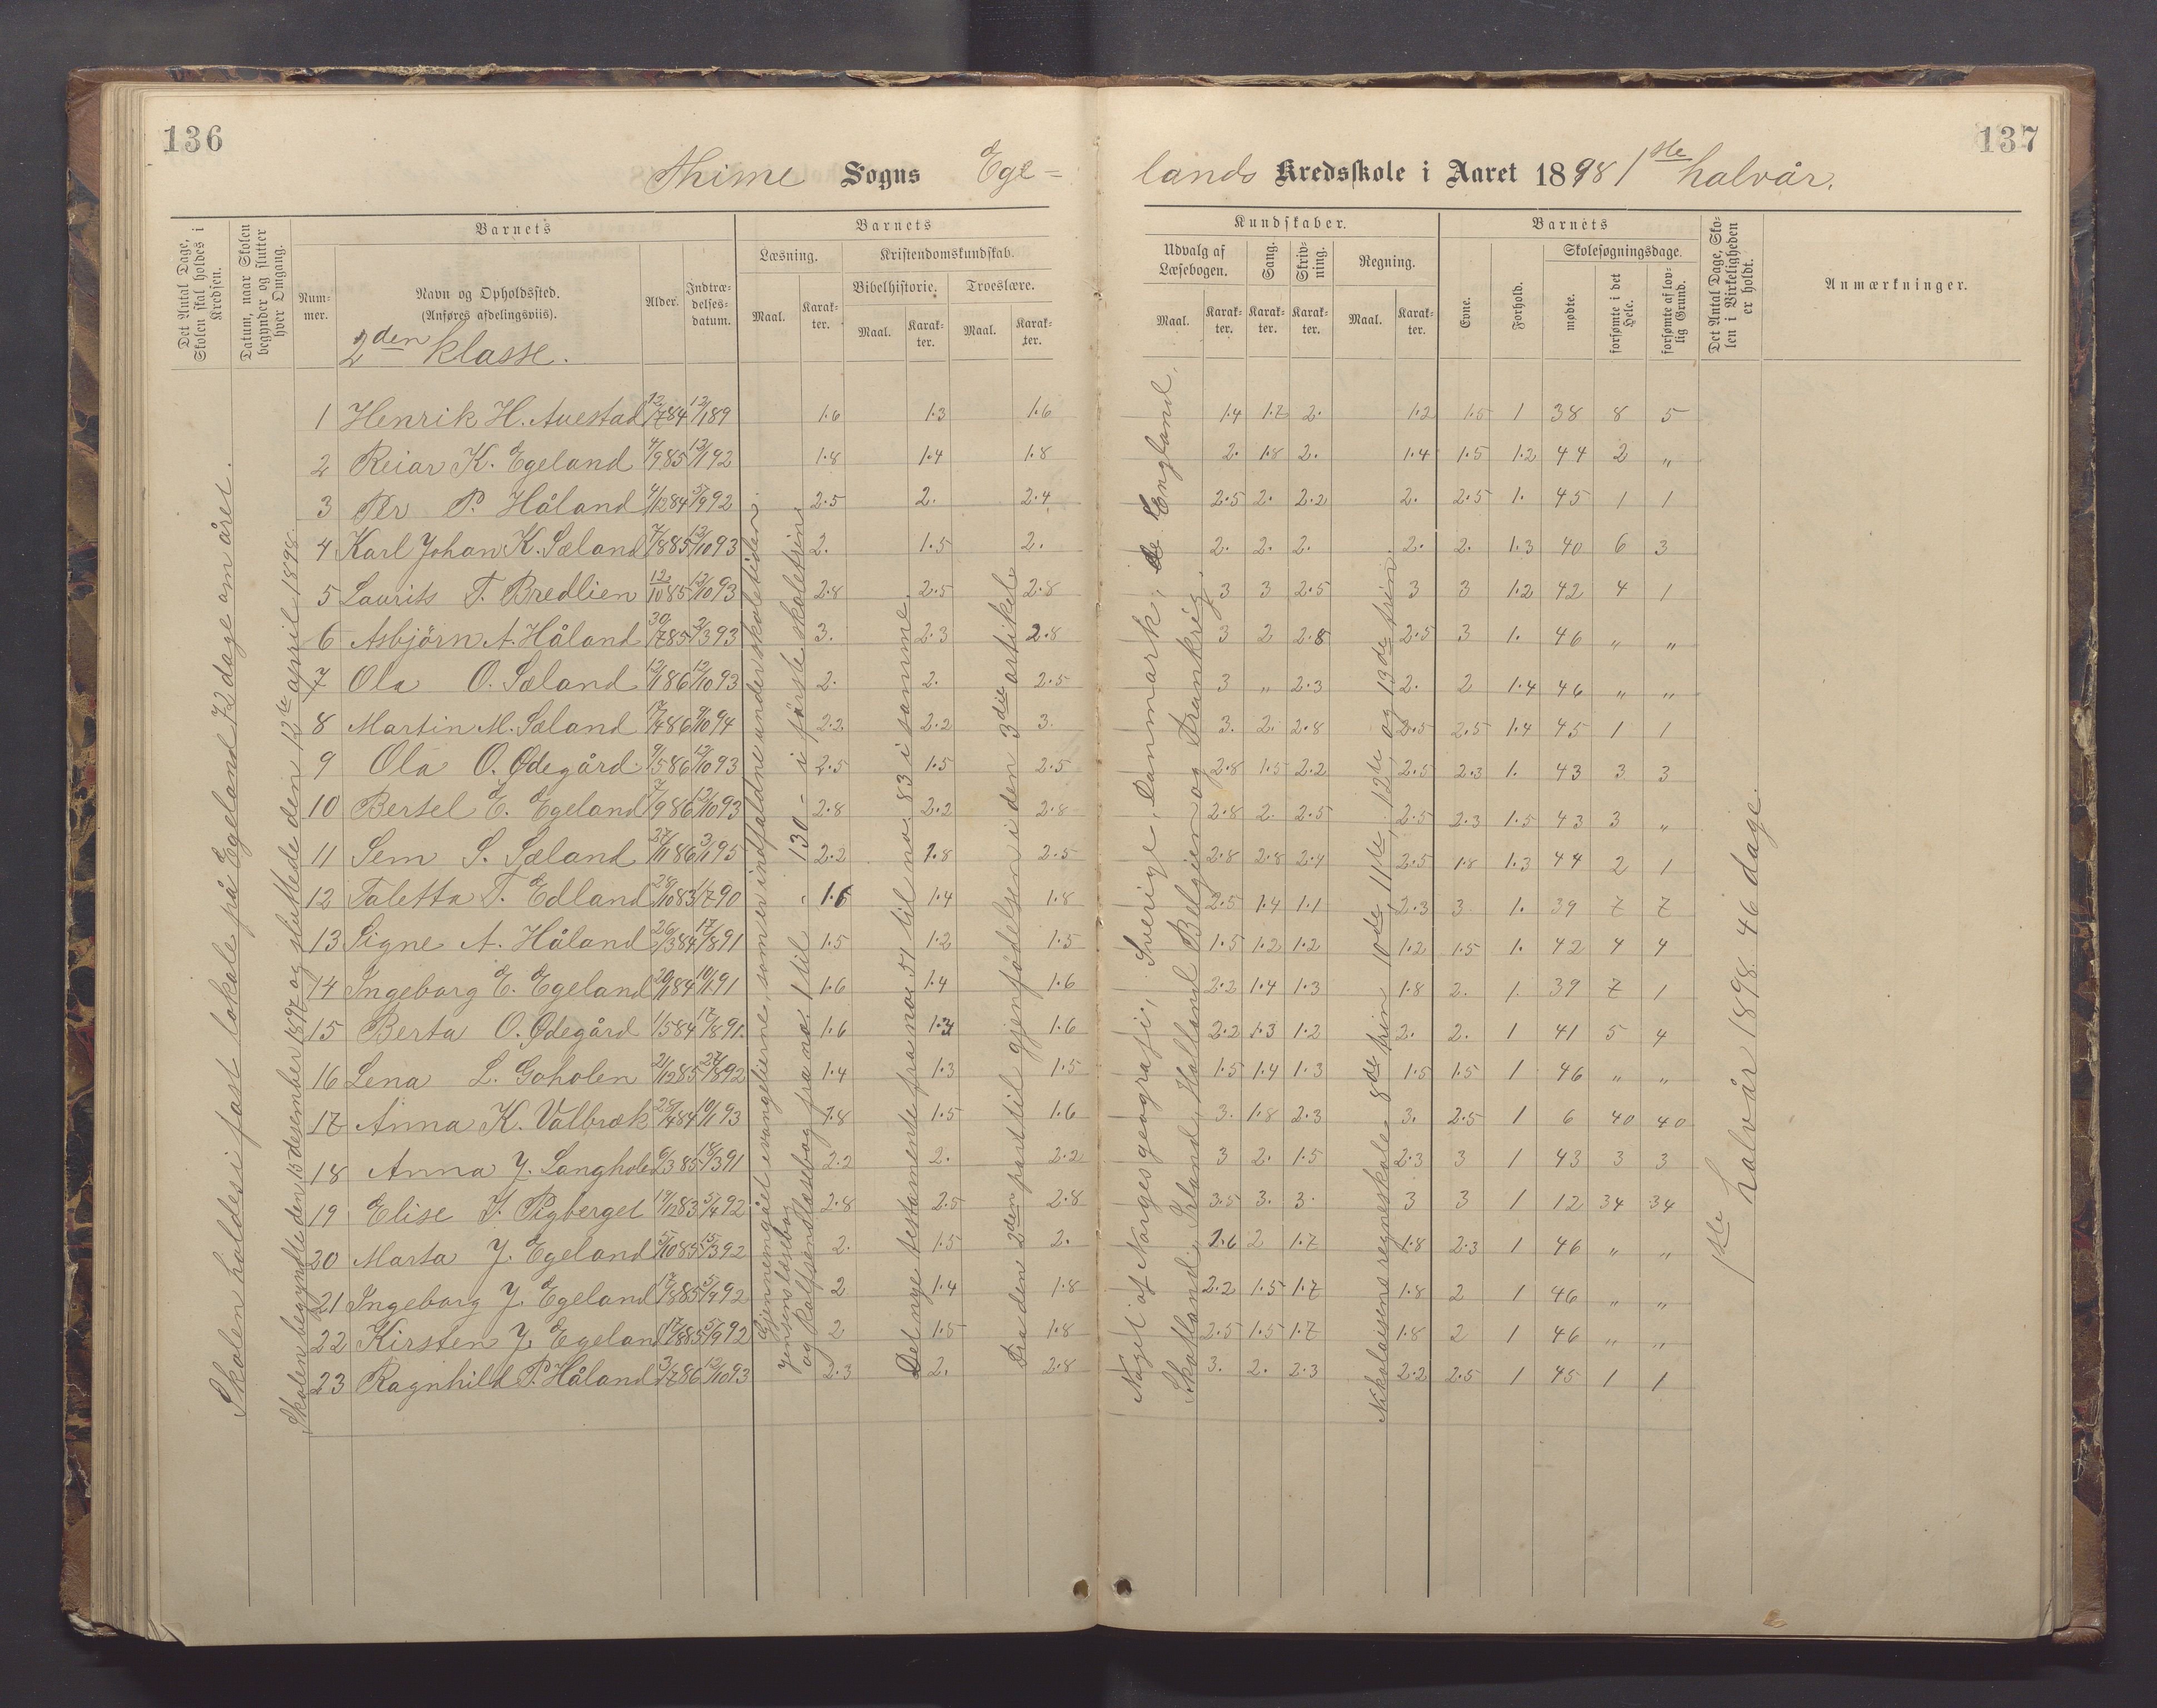 136
137
Thime Sogns Ege-
lands Kredsskole i Aaret 1898 1ste halvår.
Det Antal Dage, Skolen skal holdes i Kredsen.
Datum, naar Skolen begynder og slutter hver Omgang.
Barnets
Nummer.
Navn og Opholdssted.
(Anføres afdelingsviis).
Alder.
Indtrædelsesdatum.
Barnets
Læsning.
Maal.
Karakter.
Kristendomskundskab.
Bibelhistorie.
Maal.
Karakter.
Troeslære.
Maal.
Karakter.
Kundskaber.
Udvalg af Læsebogen.
Maal.
Karakter.
Sang.
Karakter.
Skrivning.
Karakter.
Regning.
Maal.
Karakter.
Barnets
Evne.
Forhold.
Skolesøgningsdage.
mødte.
forsømte i det Hele.
forsømte af lovlig Grund.
Det Antal Dage, Skolen i Virkeligheden er holdt.
Anmærkninger.
2den klasse.
1 Henrik H. Auestad 12/7 84 12/1 89 1.6 1.3 1.6 1.4 1.7 2. 1.2 1.5 1 38 8 5
2 Reiar K. Egeland 4/9 85 12/1 92 1.8 1.4 1.8 2. 1.8 2. 1.4 1.5 1.2 44 2 "
3 Per P. Håland 4/12 84 5/9 92 2.5 2. 2.4 2.5 2. 2.2 2. 2.5 1. 45 1 1
4 Karl Johan K. Sæland 7/8 85 12/10 93 2. 1.5 2. 2. 2. 2. 2. 2. 1.3 40 6 3
5 Laurits T. Bredlien 12/10 85 12/10 93 2.8 2.5 2.8 3 3 2.5 3 3 1.2 42 4 1
6 Asbjörn A. Håland 30/7 85 2/3 93 3. 2.3 2.8 3 2 2.8 2.5 3 1. 46 " "
7 Ola O. Sæland 12/1 86 12/10 93 2. 2. 2.5 3 " 2.3 2. 2 1.4 46 " "
8 Martin M. Sæland 17/4 86 9/10 94 2.2 2.2 3. 3. 2. 2.8 2.5 2.5 1.4 45 1 1
9 Ola O. Ødegård 9/5 86 12/10 93 2.5 1.5 2.5 2.8 1.5 2.2 2.5 2.3 1. 43 3 3
10 Bertel E. Egeland 7/9 86 12/10 93 2.8 2.2 2.8 2.8 2. 2.5 2.5 2.3 1.5 43 3 "
11 Sem S. Sæland 27/11 86 3/1 95 2.2 1.8 2.5 2.8 2.8 2.4 2.5 1.8 1.3 44 2 1
12 Taletta T. Edland 28/10 83 1/7 90 1.6 1.4 1.8 2.5 1.4 1.1 2.3 3 1. 39 7 7
13 Signe A. Håland 26/3 84 17/8 91 1.5 1.2 1.5 1.5 1.2 1.2 1.2 1.5 1. 42 4 4
14 Ingeborg E. Egeland 20/1 84 10/1 91 1.6 1.4 1.6 2.2 1.4 1.3 1.8 2. 1. 39 7 1
15 Berta O. Ødegård 1/5 84 17/8 91. 1.6 1.3 1.6 2.2 1.3 1.2 2. 2. 1 41 5 4
16 Lena L. Goholen 21/12 85 27/8 92 1.4 1.3 1.5 1.5 1.4 1.3 1.5 1.5 1 46 " "
17 Anna K. Valbræk 28/4 84 10/1 93 1.8 1.5 1.6 3. 1.8 2.3 3. 2.5 1 6 40 40
18 Anna J. Langholen 6/3 85 18/3 91 2.2 2. 2.2 3 2. 1.5 2.3 3 1 43 3 3
19 Elise J. Rigberget 19/12 83 5/4 92 2.8 2.5 2.8 3.5 3. 3. 3 3 1 12 34 34
20 Marta J. Egeland 5/10 85 15/3 92 2. 1.5 2. 2.6 2 1.7 1.8 2.3 1 46 " "
21 Ingeborg J. Egeland 17/8 85 5/9 92 2 1.4 1.8 2.2 1.5 1.7 1.8 2 1 46 " "
22 Kirsten J. Egeland 17/8 85 5/9 92 2 1.5 1.8 2.5 1.5 1.7 1.8 2 1 46 " "
23 Ragnhild P. Håland 3/7 86 12/10 93 2.3 2. 2.8 3. 2. 2.3 2.2 2.5 1 45 1 1
Skolen holdes i fast lokale på Egeland 72 dage om året.
Skolen begyndte den 15 desember 1897 og sluttede den 12te april 1898.
Gjennemgået evangelierne, som er indfaldne under skoletiden.
Jensens læsebog
og Rolfsens læsebog fra no. 1 til 130 - i første skoletrin
Det nye testamente fra no. 51 til no. 83 i samme.
Fra den 2den part til gjenfødelsen i den 3die artikel.
Noget af Norges geografi, Sverige, Danmark, England,
Skotland, Irland, Holland, Belgien og Frankrig.
Nikolaisens regneskole 8de trin 10de, 11te, 12te og 13de trin.
1ste halvår 1898. 46 dage.